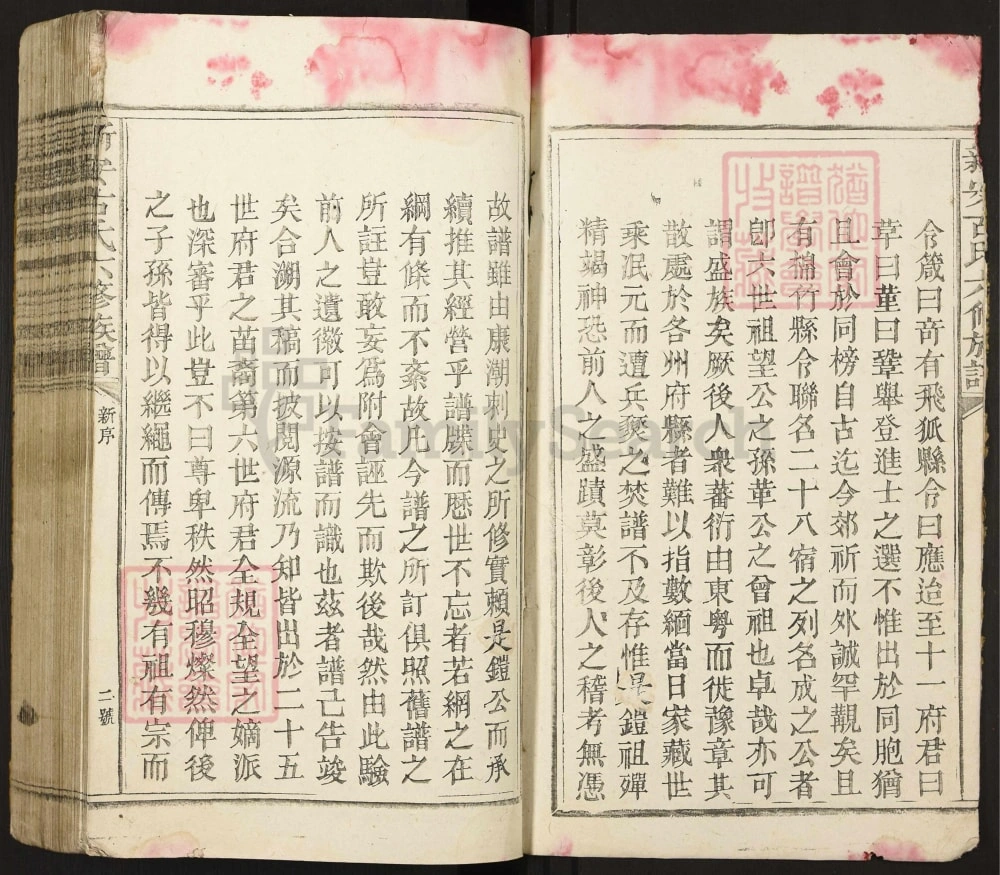 新安古氏六修族譜
令箴曰奇有飛狐縣令曰應治至十一府君曰
草曰堇曰鞏舉登進士之選不惟出於同胞猶
且會於同榜自古迄今郊祈而外誠罕覯矣且
有綿竹縣令聯名二十八宿之列名成之公者
即六世祖望公之孫革公之曾祖也卓哉亦可
謂盛族矣厥後人衆蕃衍由東粵而徙豫章其
散處於各州府縣者難以指數緬當日家藏世
乘泯元而遭兵燹之焚譜不及存惟是鎧祖殫
精竭神恐前人之盛蹟莫彰後人之稽考無憑
故譜雖由康潮刺史之所修實賴是鎧公而承
續推其經營乎譜牒而歷世不忘者若綱之在
綱有條而不紊故凡今譜之所訂俱照舊譜之
所註豈敢妄爲附會誣先而欺後哉然由此驗
前人之遺徽可以按譜而識也茲者譜已告竣
矣合溯其稿而披閱源流乃知皆出於二十五
世府君之苗裔第六世府君全規全望之嫡派
也深審乎此豈不曰尊卑秩然昭穆燦然俾後
之子孫皆得以繼繩而傳焉不幾有祖有宗而
新安古氏六修族譜
新序
二號
FamilySearch